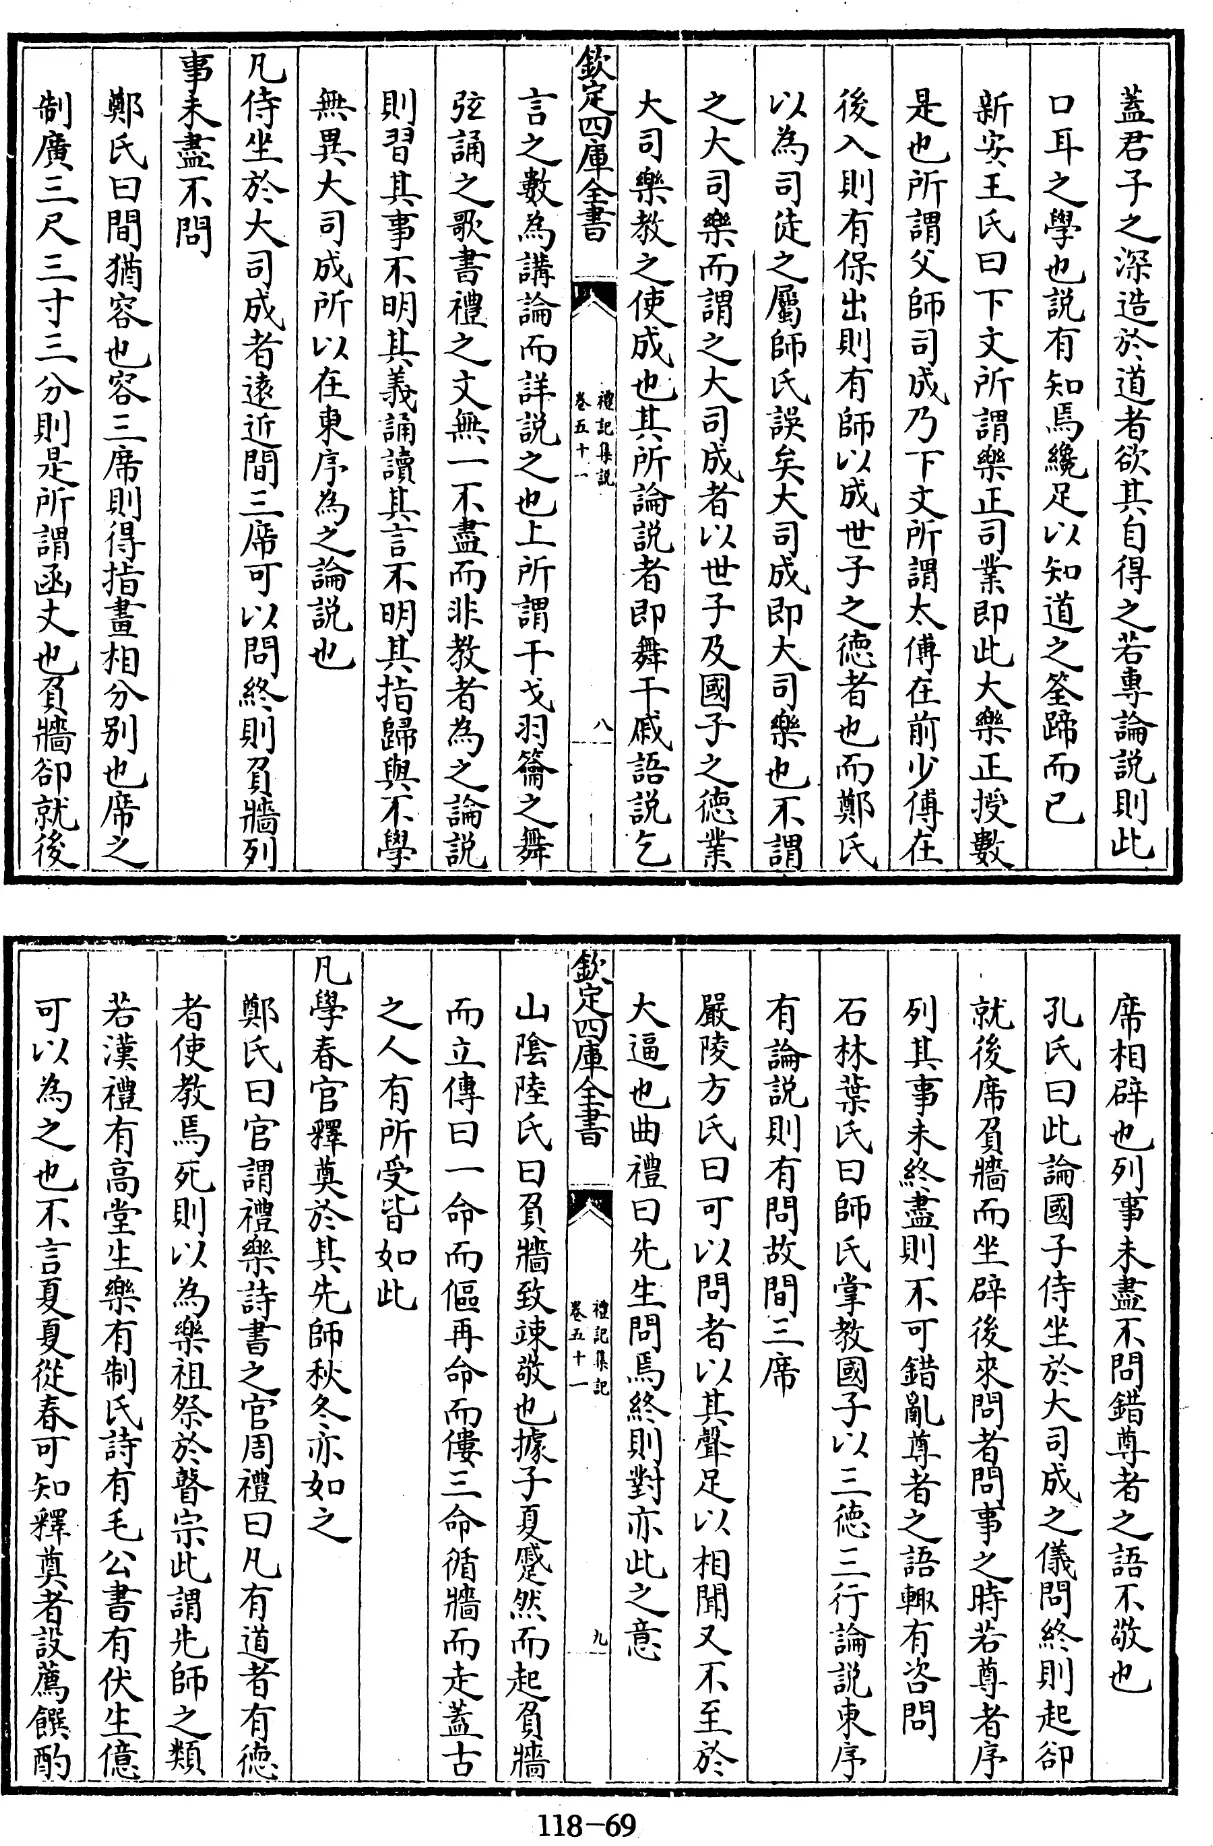 蓋君子之深造於道者欲其自得之若專論說則此
口耳之學也說有知焉纔足以知道之筌蹄而已
新安王氏曰下文所謂樂正司業即此大樂正授數
是也所謂父師司成乃下文所謂太傅在前少傅在
後入則有保出則有師以成世子之德者也而鄭氏
以為司徒之屬師氏誤矣大司成即大司樂也不謂
之大司樂而謂之大司成者以世子及國子之德業
大司樂教之使成也其所論說者即舞干戚語說乞
欽定四庫全書
禮記集說
卷五十一
八
言之數為講論而詳說之也上所謂干戈羽籥之舞
弦誦之歌書禮之文無一不盡而非教者為之論說
則習其事不明其義誦讀其言不明其指歸與不學
無異大司成所以在東序為之論說也
凡侍坐於大司成者遠近間三席可以問終則負牆列
事未盡不問
鄭氏曰間猶容也容三席則得指畫相分別也席之
制廣三尺三寸三分則是所謂函丈也負牆卻就後
席相辟也列事未盡不問錯尊者之語不敬也
孔氏曰此論國子侍坐於大司成之儀問終則起卻
就後席負牆而坐辟後來問者問事之時若尊者序
列其事未終盡則不可錯亂尊者之語輙有咨問
石林葉氏曰師氏掌教國子以三德三行論說東序
有論說則有問故間三席
嚴陵方氏曰可以問者以其聲足以相聞又不至於
大逼也曲禮曰先生問焉終則對亦此之意
欽定四庫全書
禮記集說
卷五十一
九
山陰陸氏曰負牆致竦敬也據子夏蹙然而起負牆
而立傳曰一命而傴再命而僂三命循牆而走蓋古
之人有所受皆如此
凡學春官釋奠於其先師秋冬亦如之
鄭氏曰官謂禮樂詩書之官周禮曰凡有道者有德
者使教焉死則以為樂祖祭於瞽宗此謂先師之類
若漢禮有高堂生樂有制氏詩有毛公書有伏生億
可以為之也不言夏夏從春可知釋奠者設薦饌酌
118-69